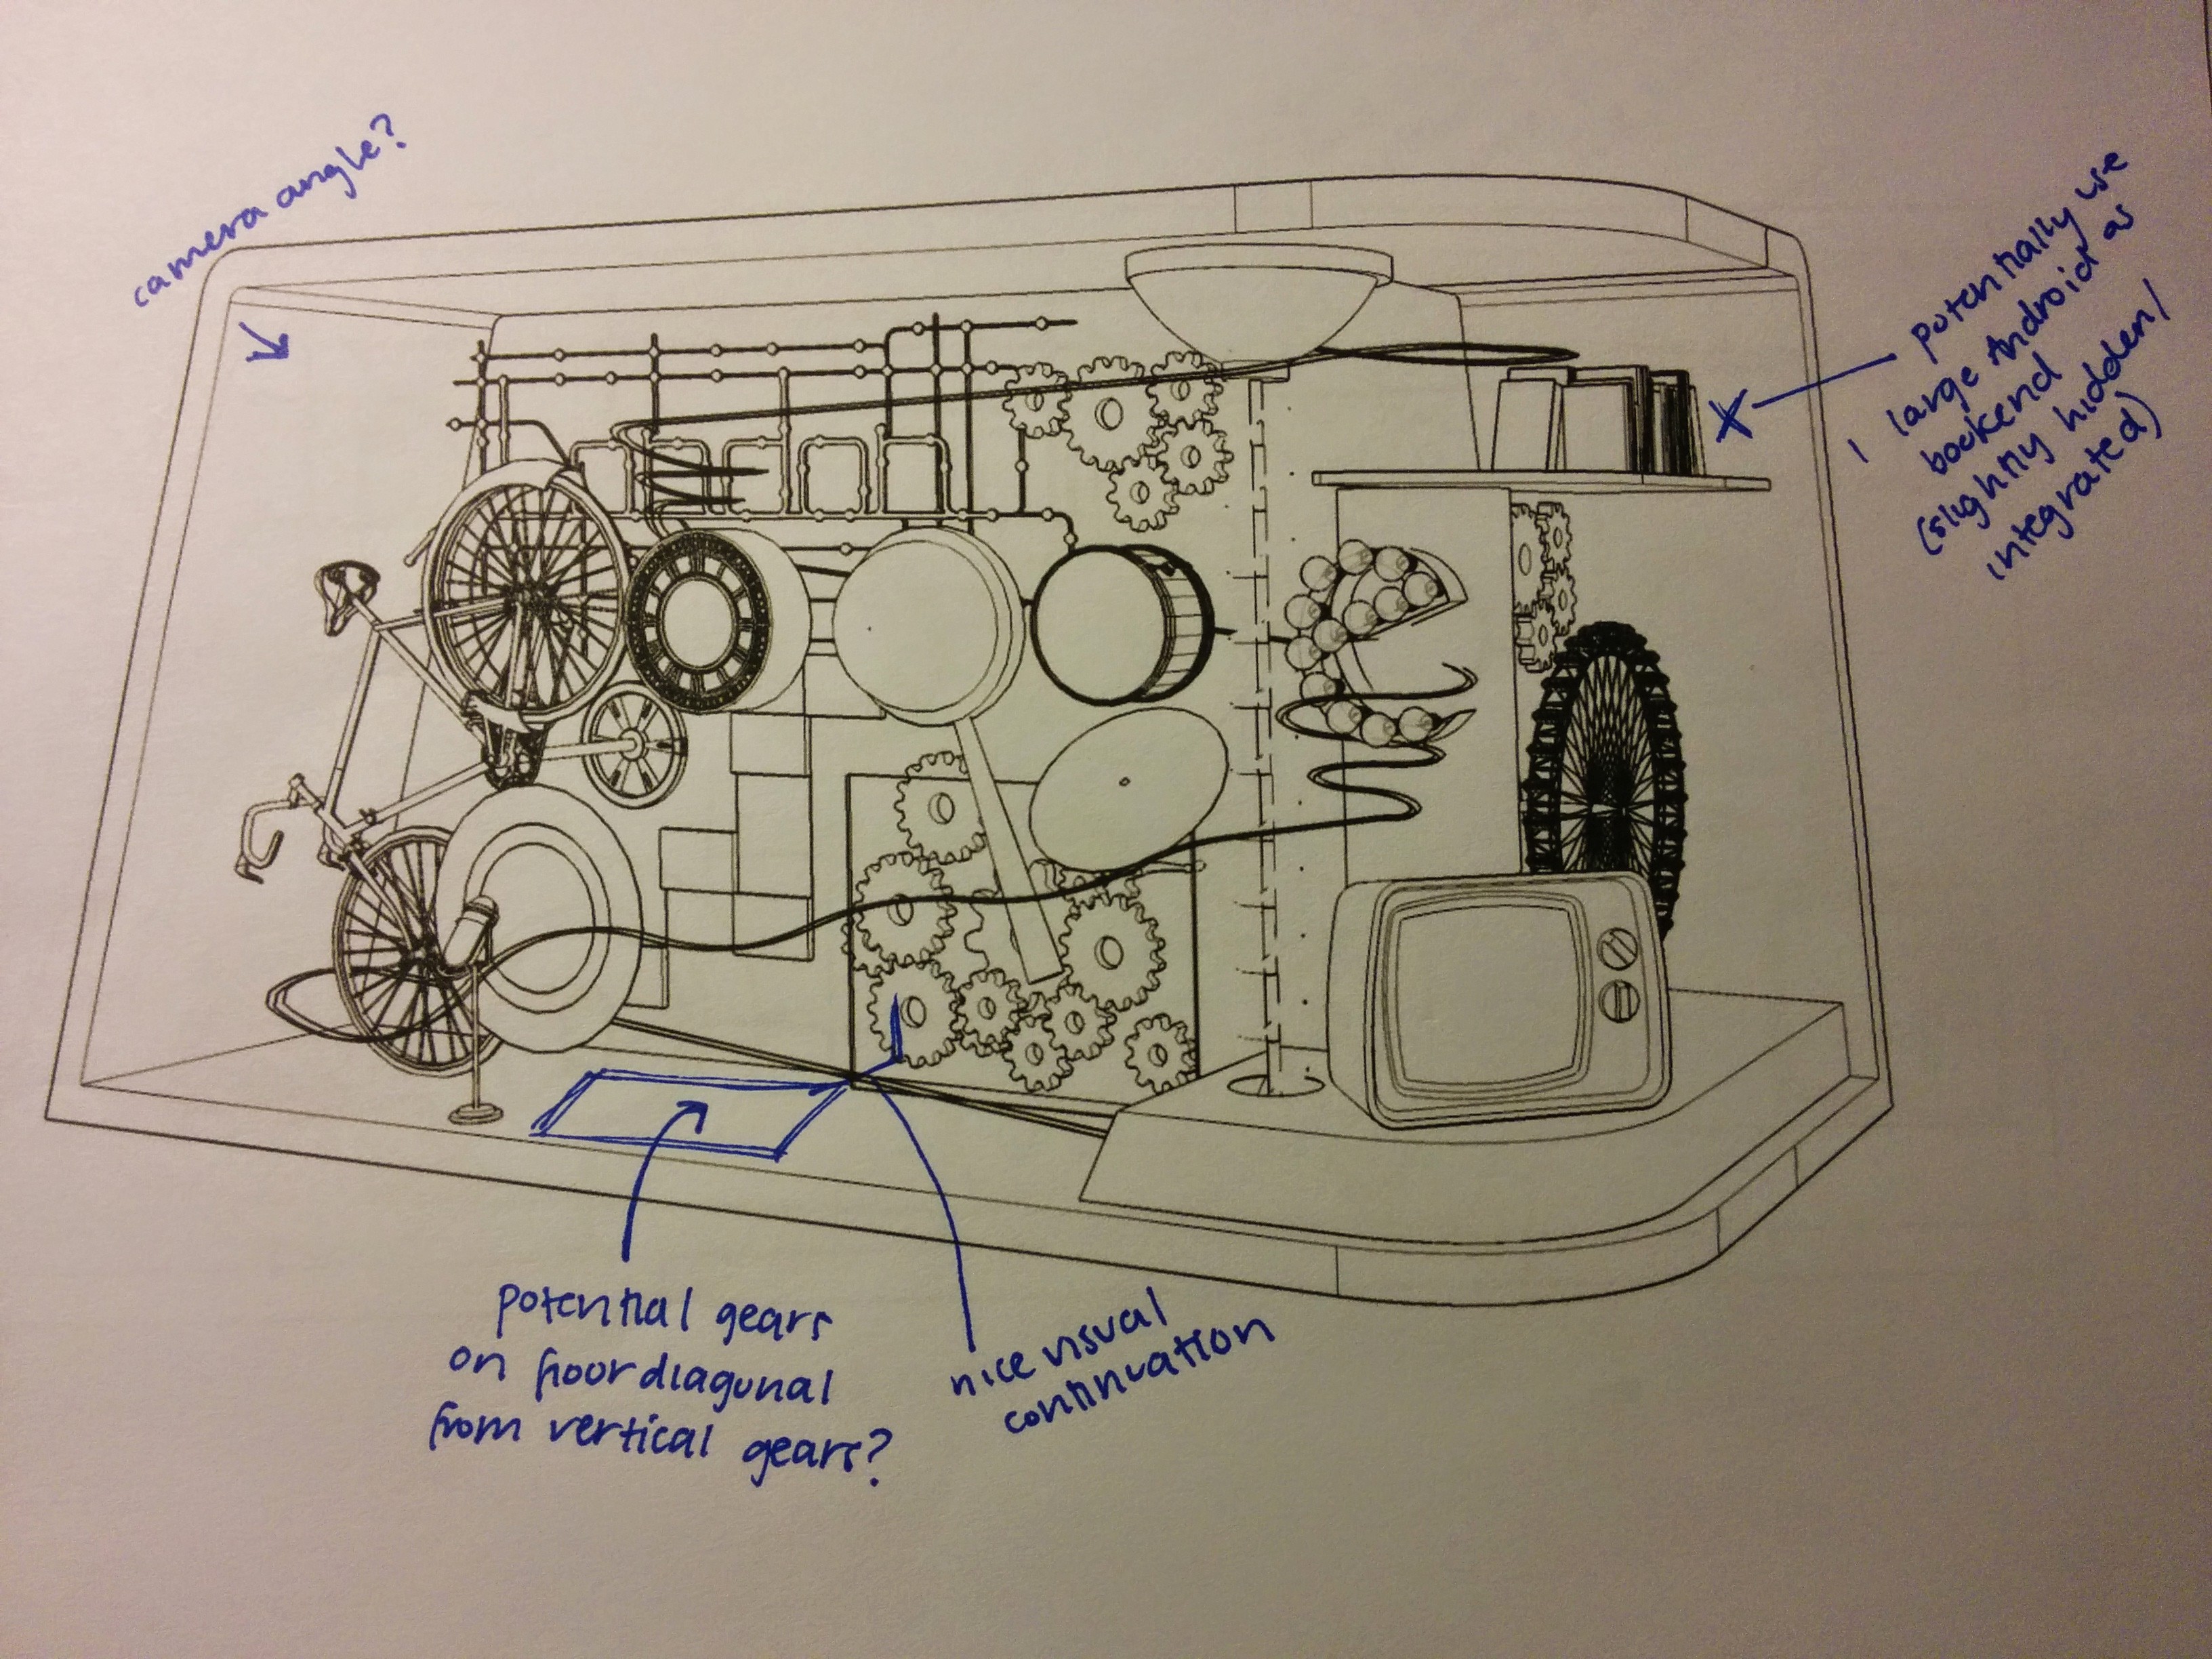 camera angle?
potentially use
1 large Android as
bookend
(slightly hidden/
integrated)
potential gears
on floor diagonal
from vertical gears?
nice visual
continuation